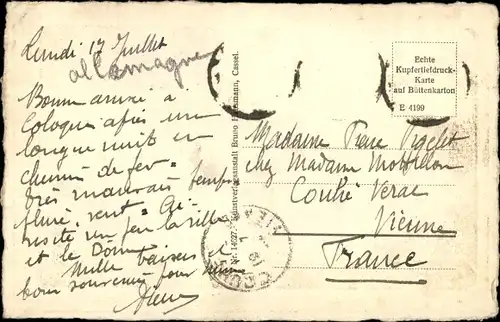 Lundi 17 Juillet
allemagne
Bonne arrivée à
Cologne après une
longue nuit en
chemin de fer
très mauvais temps
pluie, vent
visité un peu la ville
et le Dôme
Mille baisers et
bon souvenir pour
Echte
Kupfertiefdruck-
Karte
auf Büttenkarton
E 4199
Nr. 14627. Kunstverlagsanstalt Bruno Hansmann, Cassel.
Madame Pierre
chez Madame
Couhé Verac
Vienne
France